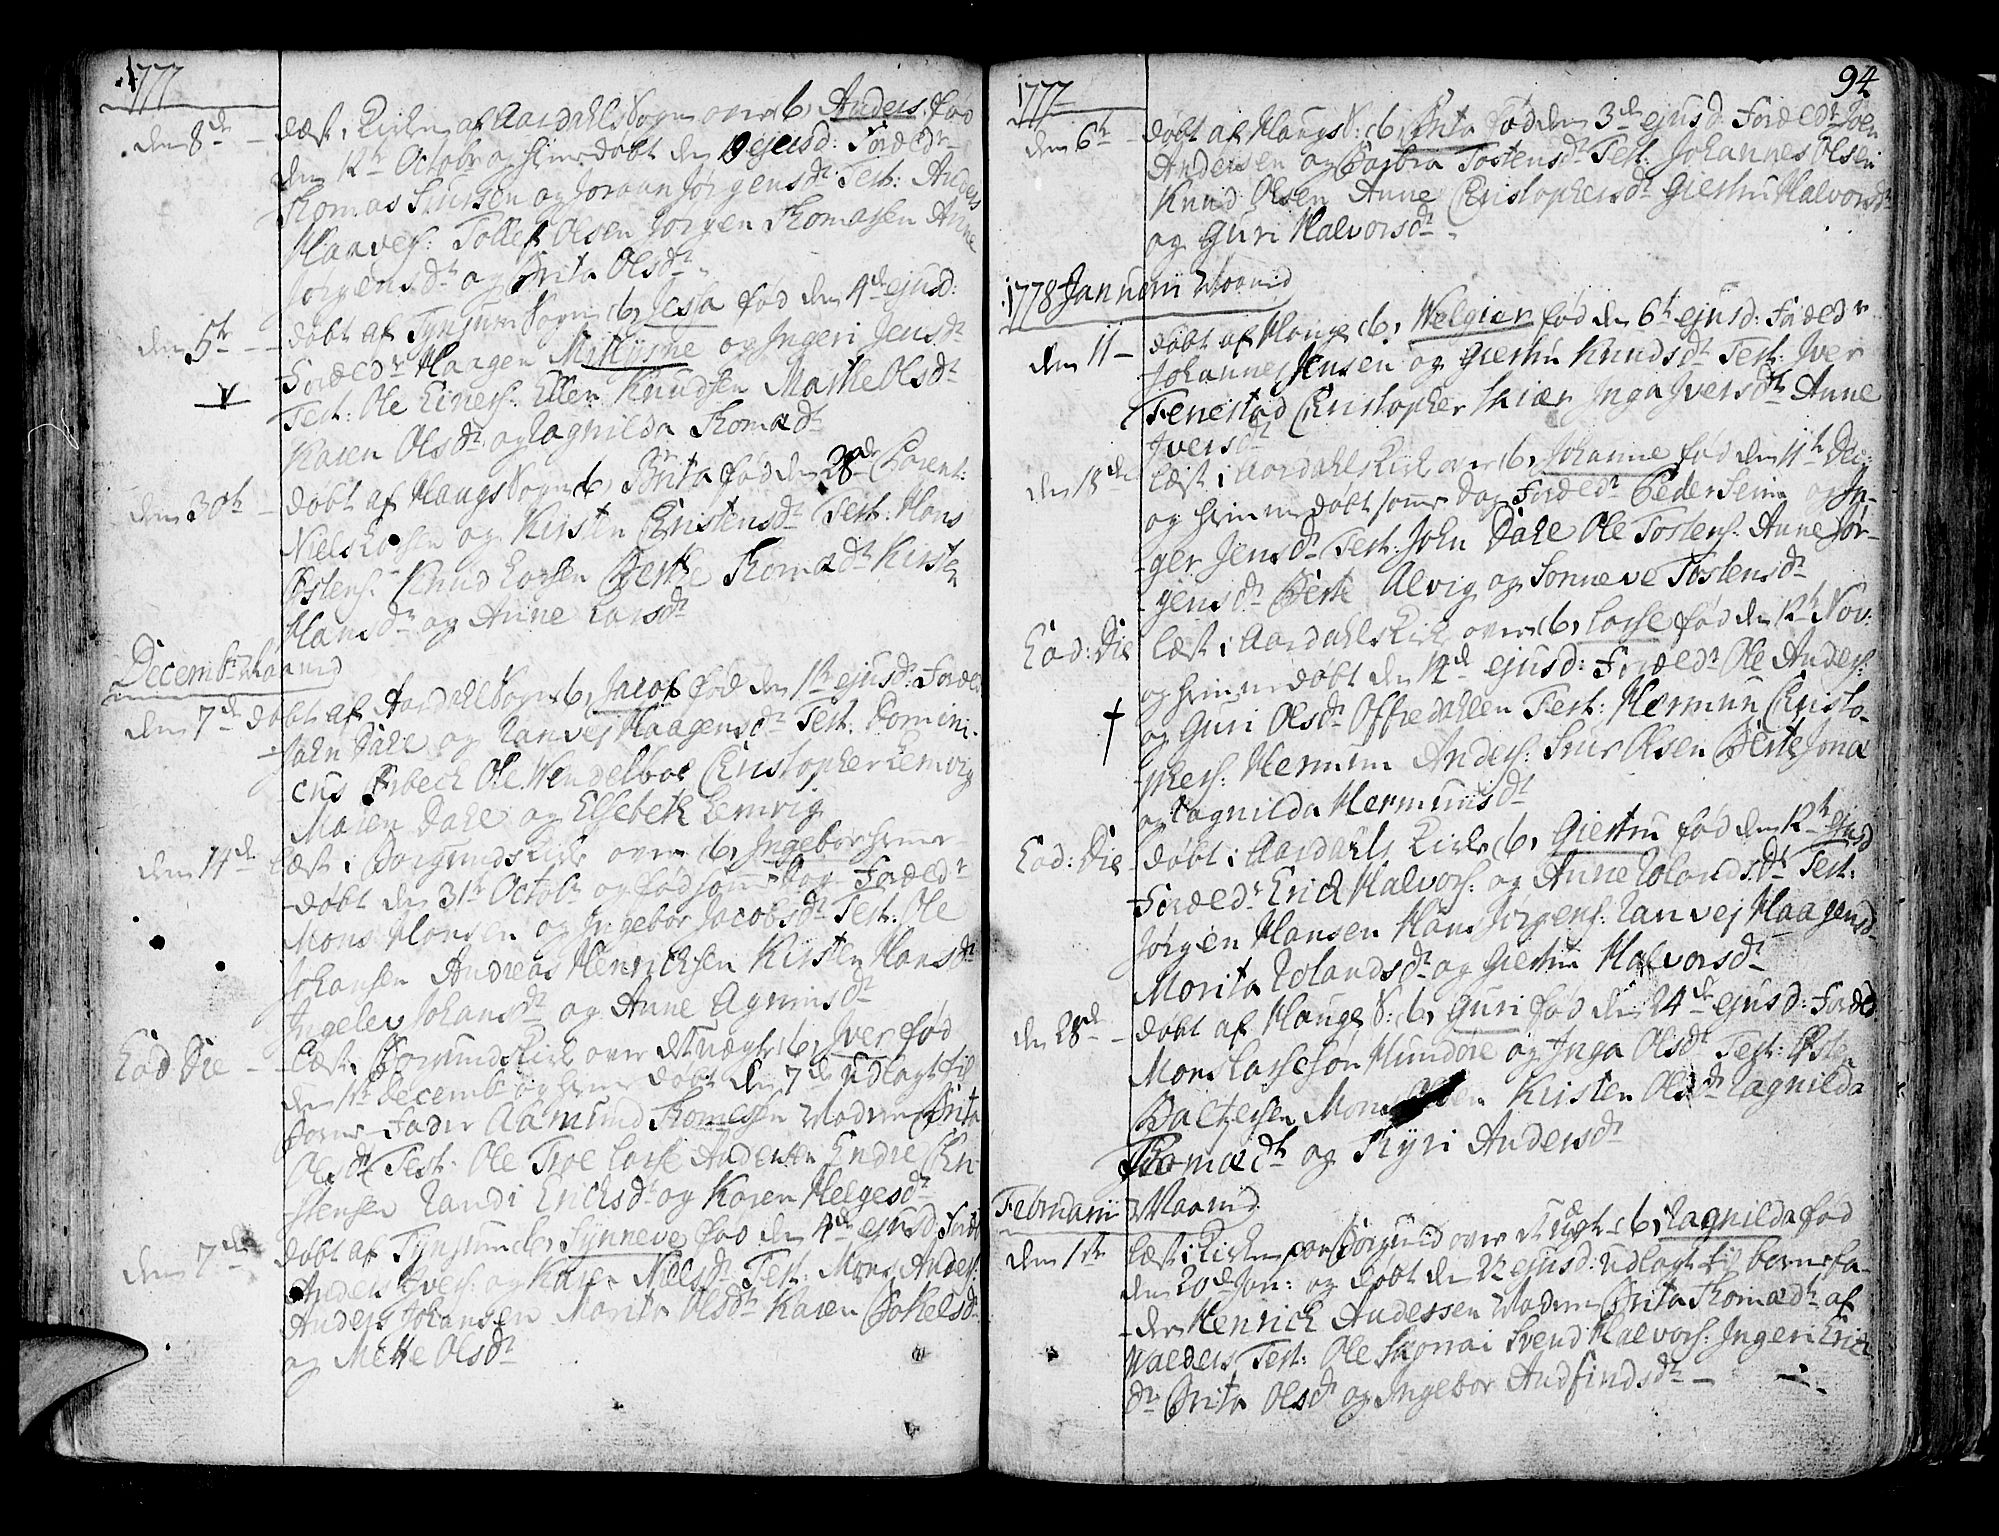 1777
den 8de læst i Kirken af Aardahls Sogn over b, Anders, fød
den 12te Octobr og hiemdøbt den ejusd: Forældr
Thomas Siursen og Joraan Jørgensdr. Test: Anders
Haavers: Tollef Olsen Jørgen Thomasen Anne
Jørgensdr og Brita Olsdr.
den 5te døbt af Tynjum Sogn b, Jesja fød den 4de ejusd:
Forældr Haagen og Ingeri Jensdr
Test: Ole Einers: Ellen Knudsen Marthe Olsdr
Karen Olsdr og Ragnilda Thomædr
den 30th døbt af Haugs Sogn b, Brita fød den 28de Parent:
Niels Larsen og Kirsten Christensdr Test: Hans
Østens: Knud Larsen Berthe Thomædr Kirsten
Hansdr og Anne Larsdr
Decembr Maanid
den 7de døbt af Aardahl Sogn b, Jacob fød den 1te ejusd: Foræld
John Dahl og Ranvej Haagensdr Test: Domini-
cus Orbech Ole Wendelboe Christopher Lemvig
Maren Dahl og Elsebeth Lemvig
den 14de læst i Borgunds Kirk over b, Ingebor hiem
døbt den 31te Octobr og fød samme Dag Forældr
Mons Hansen og Ingebor Jacobsdr Test: Ole
Johansen Andreas Henrichsen Kirsten Hansdr
Ingelev Johansdr og Anne Agmundsdr
Eod: Die læst i Borgunds Kirk over et uægte b, Iver fød
den 1te Decemb og hiemdøbt den 7de Udlagt til
Barne-Fader Aamund Thomesen Moderen Brita
Olsdr Test: Ole Troe Lasse Andersen Endre Chri-
stensen Randi Erichsdr og Karen Helgesdr
den 7de døbt af Tynjum b, Synneve fød den 4de ejusd Foræld
Anders Ivers: og Karen Nielsdr Test: Mons Anders:
Anders Johansen Marita Olsdr Karen Botelsdr
og Mette Olsdr
1777 94
den 6te døbt af Haugs S: b, Brita fød den 3de ejusd Forældr Joen
Andersen og Barbra Tostensdr Test: Johannes Olsen
Knud Olsen Anne Christophersdr Giertru Halvorsdr
og Guri Halvorsdr
1778 Januarii Maanid
den 11 døbt af Hauge b, Welgier fød den 6te ejusd: Forældr
Johannes Jensen og Giertru Knudsdr Test: Iver
Fenestad Christopher Skiær Inga Iversdr Anne
Iversdr
den 18de læst i Aardahls Kirk over b, Johanne fød den 11te Dec:
og hiemmedøbt samme Dag Forældr Peder Feiin og In-
ger Jensdr Test: John Dahl Ole Tostens: Anne Jør-
gensdr Berte Alvig og Sonneve Tostensdr
Eod: Die læst i Aardahls Kirk over b, Lasse fød den 12te Nov:
og hiemmedøbt den 14de ejusd: Forældr Ole Anders:
og Guri Olsdr Offredahlen Test: Hermun Christo-
phers: Hermun Anders: Siur Olsen Berte Jonæ
og Ragnilda Hermunsdr
Eod: Die døbt i Aardahls Kirk b, Giertru fød den 12te ejusd
Forældr Erick Halvors: og Anne Rolandsdr Test:
Jørgen Hansen Hans Jørgens: Ranvej Haagensdr
Marita Rolandsdr og Giertru Halvorsdr
den 28de døbt af Hauge S: b, Guri fød den 24de ejusd: Foræld
Mons Lassesøn Hundere og Inga Olsdr Test: Østen
Baltzersen Mons Kirsten Olsdr Ragnilda
Thomædr og Thyri Andersdr
Februarii Maanid
den 1te læst i Kirken paa Borgund over et uægte b, Ragnilda fød
den 20de Jan: og døbt den 22 ejusd: udlagt til barnefa-
der Henrich Andessen Moderen Brita Thomædr af
Walders Test: Ole Svend Halvors: Ingeri Erichs
dr Brita Olsdr og Ingebor Andfindsdr